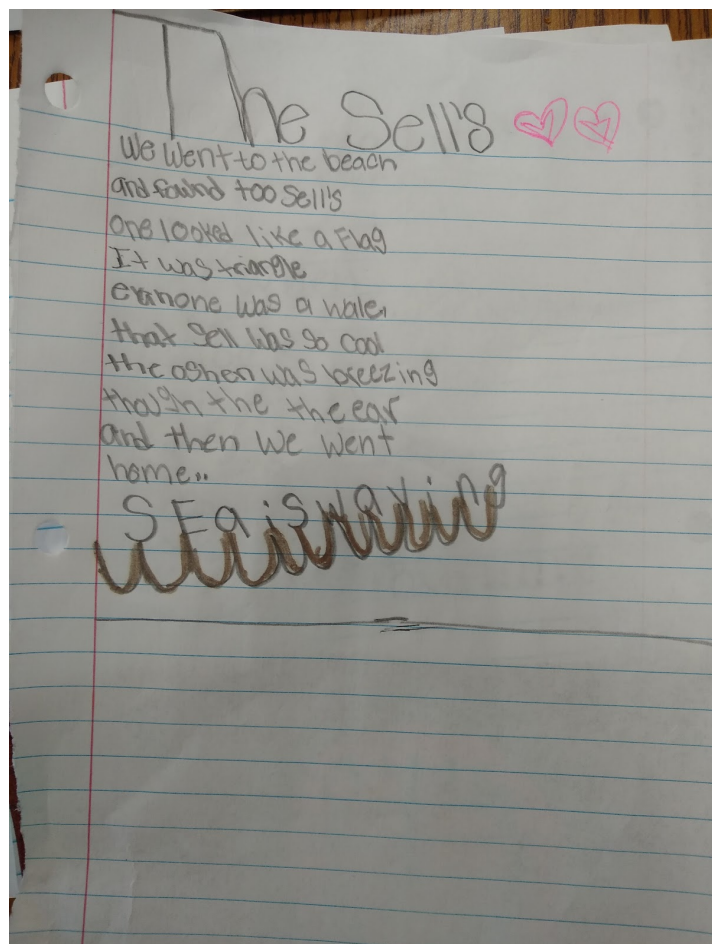 The Sell's
We went to the beach
and found too Sell's
one looked like a Flag
It was triangle
one was a wale,
that Sell was so cool
the oshen was breezing
though the the ear
and then we went
home..
SEa is waving